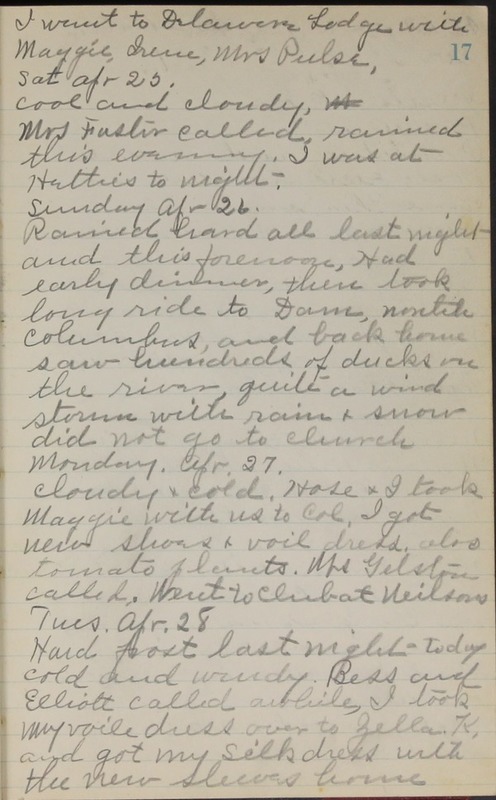 I went to Delaware Lodge with
Maggie, Irene, Mrs Pulse,
17
Sat Apr 25.
cool and cloudy,
Mrs Foster called, rained
this evening. I was at
Hatties to night.
Sunday Apr 26.
Rained hard all last night
and this forenoon, Had
early dinner, then took
long ride to Dam, north
Columbus, and back home
saw hundreds of ducks on
the river, quite a wind
storm with rain & snow
did not go to church
Monday. Apr. 27.
Cloudy & cold. Hose & I took
Maggie with us to Col, I got
new shoes & voil dress, also
tomato plants. Mrs Gelston
called, Went to Club at Neilsons
Tues. Apr. 28
Hard frost last night - today
cold and windy. Bess and
Elliott called awhile, I took
my voile dress over to Zella K,
and got my Silk dress with
the new sleeves home